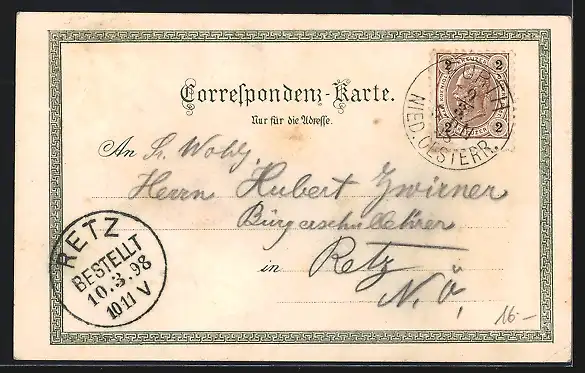 2 2
2 2
NIED. OESTERR.
Correspondenz-Karte.
Nur für die Adresse.
An Sr. Wohlg.
Herrn Hubert Zwirner
Bürgerschullehrer
in Retz
N.Ö.
RETZ
BESTELLT
10.3.98
10 11 V
16.-